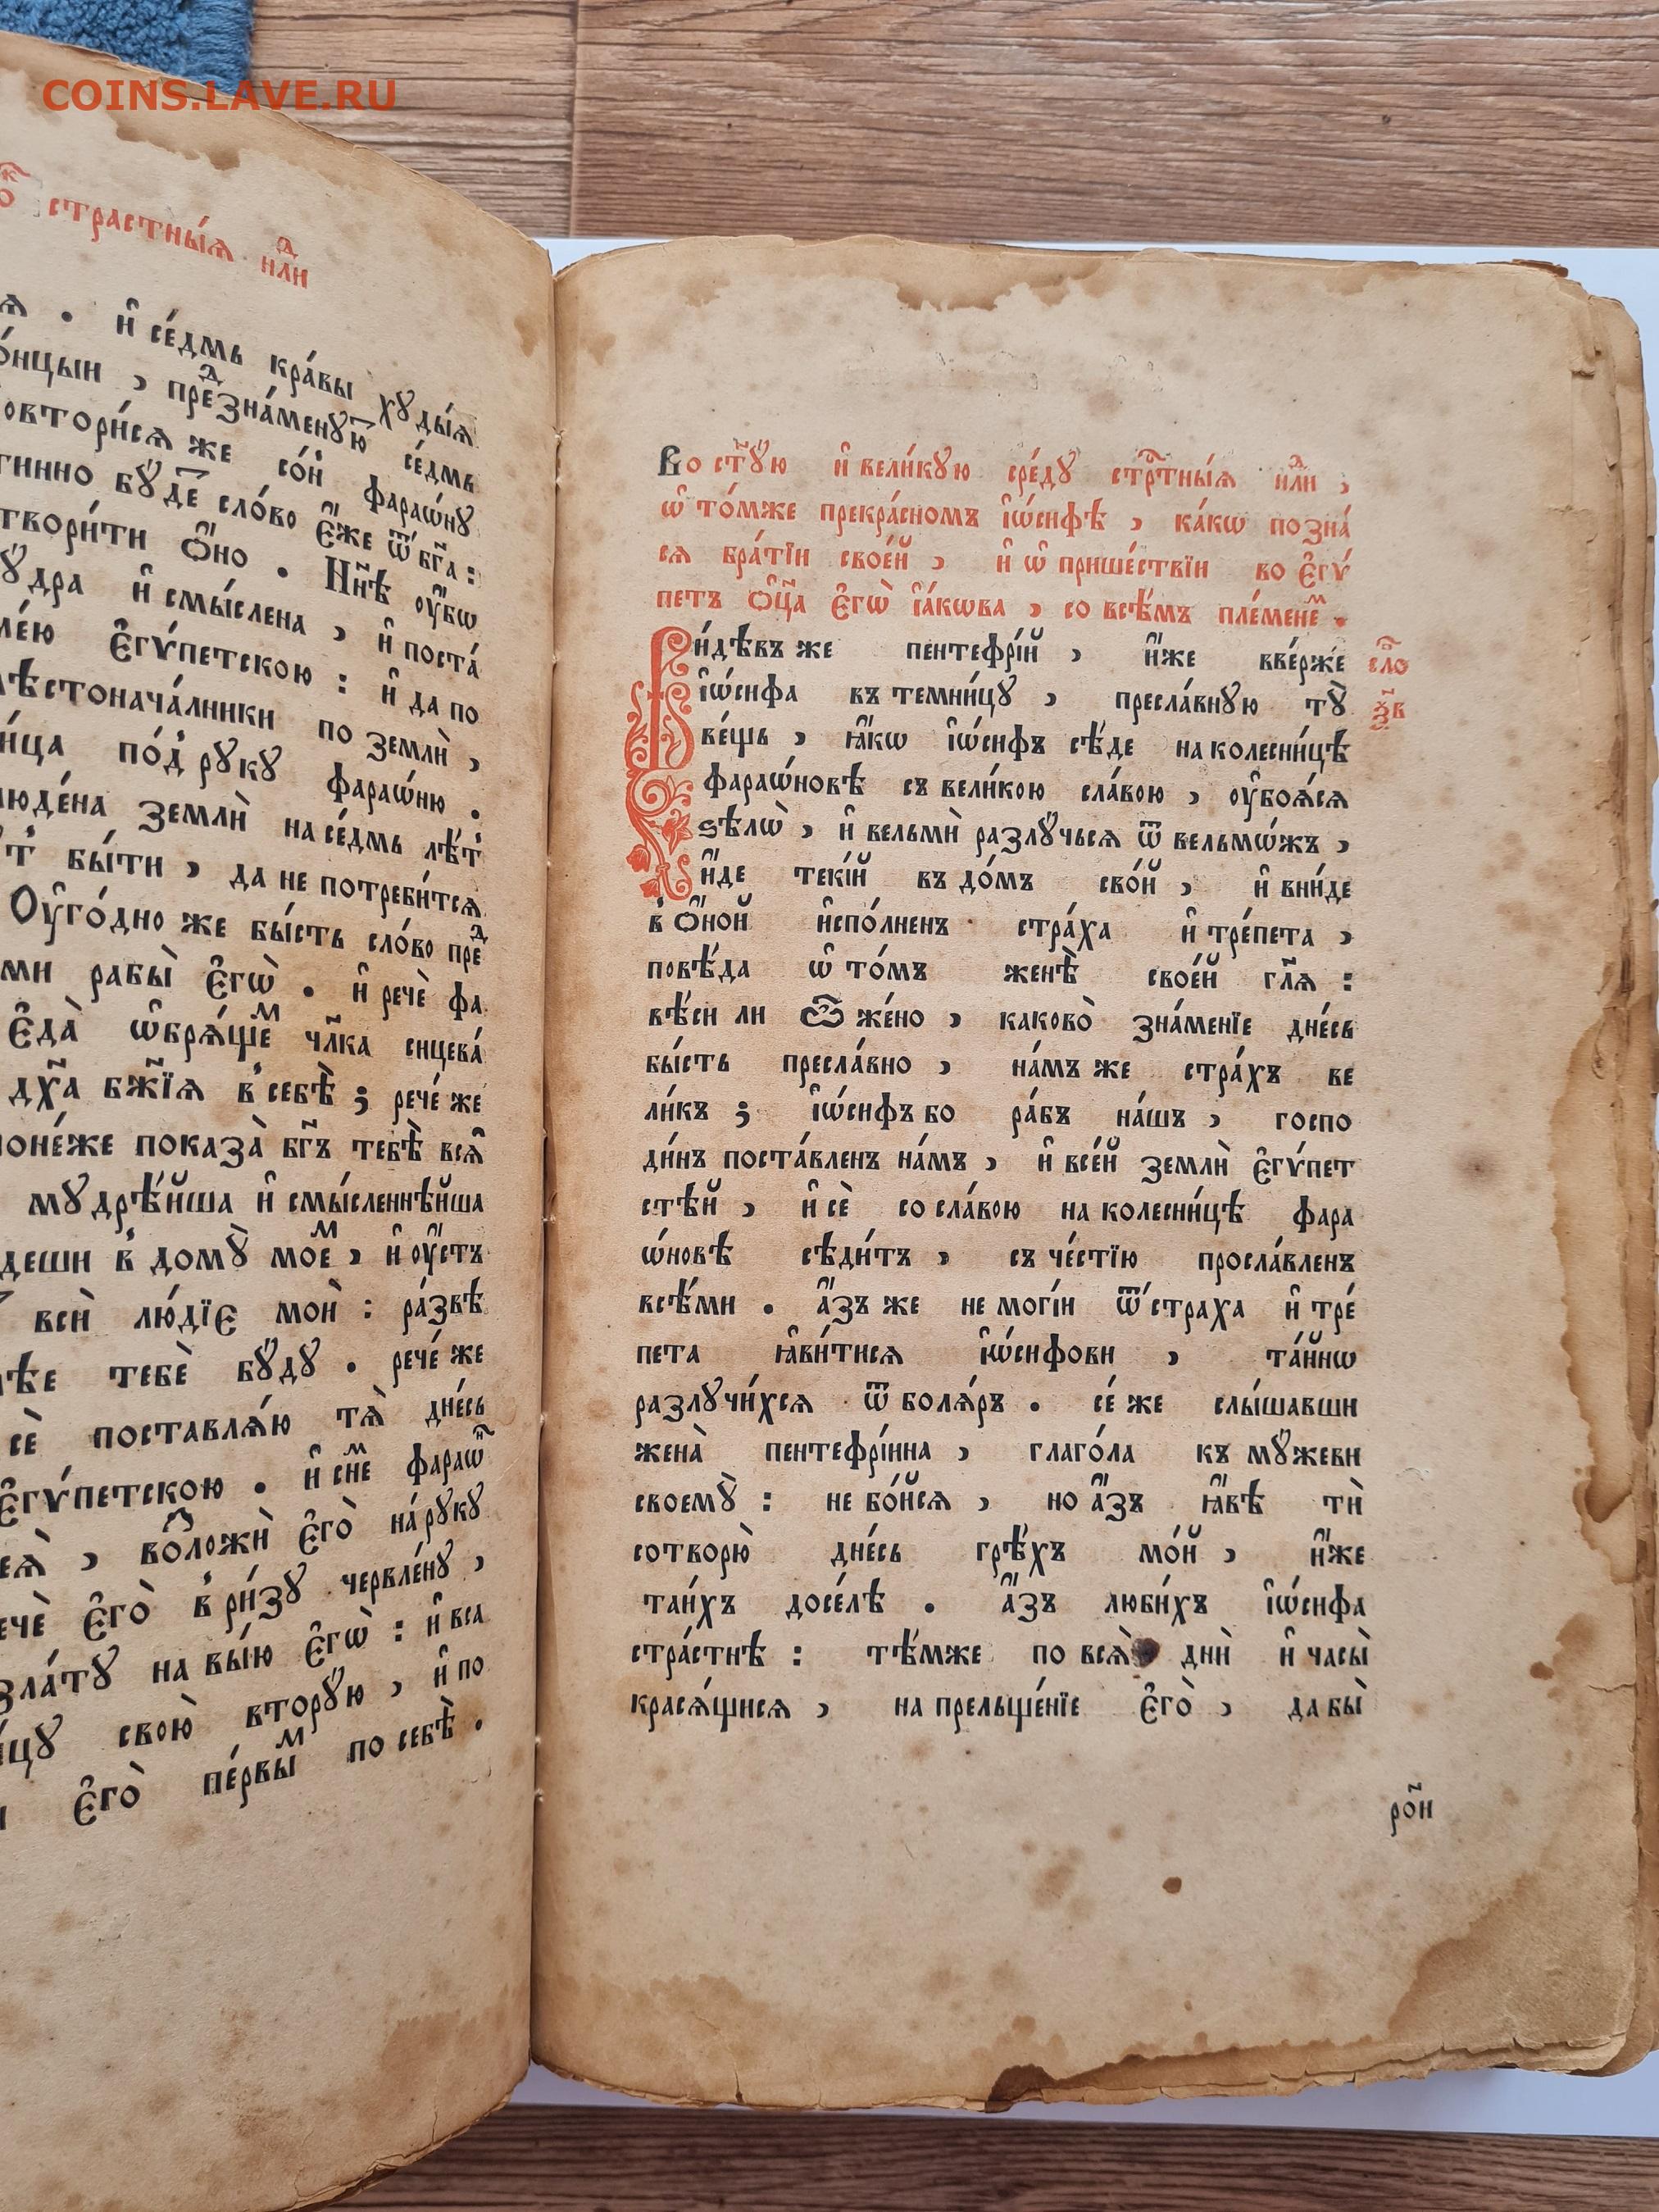 COINS.LAVE.RU
страстны́ѧ нⷣли
. и҆ се́дмь кра́вы хꙋды́ѧ
, преⷣзна́менꙋю҃ се́дмь
же со́н̾ фараѡ́нꙋ
бꙋ́де҃ сло́во є҆́же ѿ бг҃а :
твори́ти ѻ҆́но . Нн҃ѣ ᲂу҆́бѡ
и҆ смы́слена , и҆ поста́
є҆гѵ́петскою : и҆ да по
по землѝ ,
по́д̾ рꙋкꙋ фараѡ́ню .
землѝ на се́дмь лѣ́т̾
бы́ти , да не потреби́тсѧ
Оу҆го́дно же бы́сть сло́во преⷣ
ми рабы̀ є҆гѡ̀ . и҆ речѐ фа
є҆да̀ ѡ҆брѧ́щеⷨ чл҃ка сицева́
дх҃а бж҃їѧ в̾ себѣ̀ ; рече́ же
поне́же показа̀ бг҃ъ тебѣ̀ всѧ̑
мꙋдрѣ́йша и҆ смы́сленнѣйша
в̾ домꙋ̀ моеⷨ , и҆ ᲂу҆́стъ
всѝ лю́дїє моѝ : ра́звѣ
тебѐ бꙋ́дꙋ . рече́ же
сѐ поставлѧ́ю тѧ̀ дне́сь
є҆гѵ́петскою . и҆ снⷨе фараѡⷩ
, возложѝ є҆го̀ на́ рꙋкꙋ
є҆го̀ в̾ ри́зꙋ червле́нꙋ ,
зла́тꙋ на вы́ю є҆гѡ̀ : и҆ вса
свою̀ вторꙋ́ю , и҆ по
є҆го̀ пе́рвыⷨ по себѣ̀ .
Во ст҃ꙋ́ю и҆ вели́кꙋю сре́дꙋ стрⷭ҇тны́ѧ нⷣли ,
ѡ҆ то́мже прекра́сномъ і҆ѡ́сифѣ , ка́кѡ позна́
сѧ бра́тїи свое́й , и҆ ѡ҆ прише́ствїи во є҆гѵ́
петъ ѻ҆ц҃а є҆гѡ̀ і҆а́кѡва , со всѣ́мъ пле́менеⷨ .
Ви́дѣвъ же пентефрі́й , и҆́же вве́рже
і҆ѡ́сифа въ темни́цꙋ , пресла́внꙋю тꙋ̀
ве́щь , ꙗ҆́кѡ і҆ѡ́сифъ сѣ́де на колесни́цѣ
фараѡ́новѣ съ вели́кою сла́вою , ᲂу҆боѧ́сѧ
ѕѣлѡ̀ , и҆ вельмѝ разлꙋ́чьсѧ ѿ вельмѡ́жъ ,
и҆́де текі́й въ до́мъ сво́й , и҆ вни́де
в̾ ѻ҆́ной и҆спо́лненъ стра́ха и҆ тре́пета ,
повѣ́да ѡ҆ то́мъ женѣ̀ свое́й гл҃ѧ :
вѣ́си ли ѽ же́но , каково̀ зна́менїе дне́сь
бы́сть пресла́вно , на́мъ же стра́хъ ве
ли́къ ; і҆ѡ́сифъ бо ра́бъ на́шъ , госпо
ди́нъ поста́вленъ на́мъ , и҆ все́й землѝ є҆гѵ́пет
стѣй , и҆ сѐ со сла́вою на колесни́цѣ фара
ѡ́новѣ сѣди́тъ , съ че́стїю просла́вленъ
всѣ́ми . а҆́зъ же не могі́й ѿ стра́ха и҆ тре́
пета ꙗ҆ви́тисѧ і҆ѡ́сифови , та́йнѡ
разлꙋчи́хсѧ ѿ болѧ́ръ . се́ же слы́шавши
жена̀ пентефрі́ина , глаго́ла къ мꙋ́жеви
своемꙋ̀ : не бо́йсѧ , но а҆́зъ ꙗ҆́вѣ тѝ
сотворю̀ дне́сь грѣ́хъ мо́й , и҆́же
таи́хъ досе́лѣ . а҆́зъ люби́хъ і҆ѡ́сифа
стра́стнѣ : тѣ́мже по всѧ̀ днѝ и҆ часы̀
красѧ́щисѧ , на прельще́нїе є҆го̀ , да бы̀
сло
рои